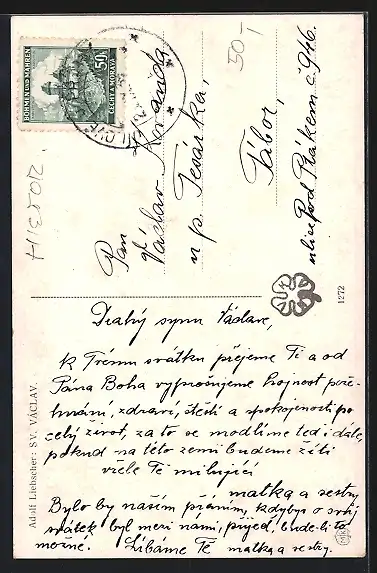 BÖHMEN UND MÄHREN
50
ČECHY A MORAVA
50,-
HISTOR.
Pan
Václav Kranda
u p. Tesárka,
Tábor,
ulice Pod Ptákem č. 946.
VKKV
1272
Adolf Liebscher: SV. VÁCLAV.
Drahý synu Václave,
k Tvému svátku přejeme Ti a od
Pána Boha vyprošujeme hojnost pože-
hnání, zdraví, štěstí a spokojenosti po
celý život, za to se modlíme teď i dále,
pokud na této zemi budeme žíti
vřele Tě milující
matka a sestry.
Bylo by naším přáním, kdybys o svůj
svátek byl mezi námi, přijeď, bude-li to
možné. Líbáme Tě matka a sestry.